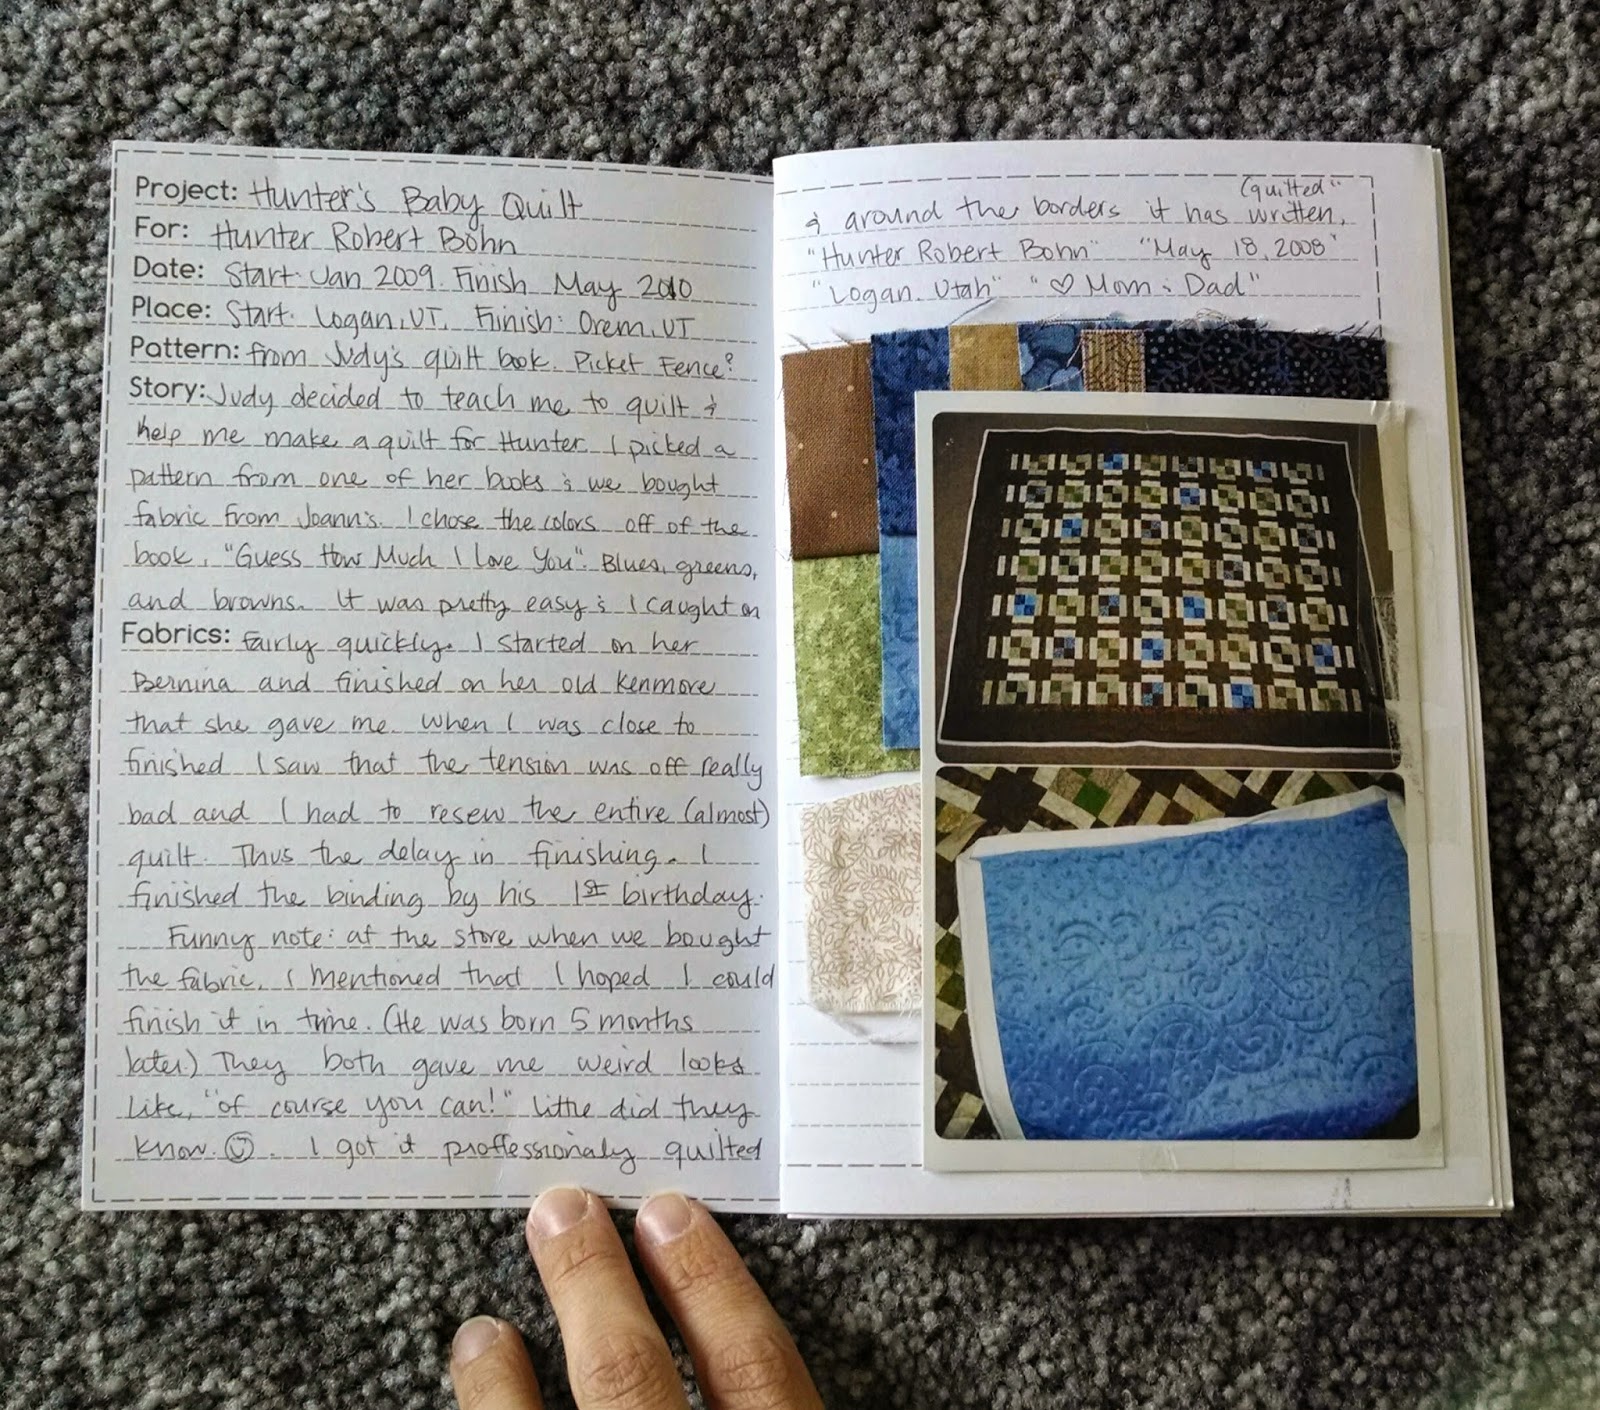 Project: Hunter's Baby Quilt
For: Hunter Robert Bohn
Date: Start: Jan 2009. Finish May 2010
Place: Start: Logan, UT. Finish: Orem, UT
Pattern: from Judy's quilt book. Picket Fence?
Story: Judy decided to teach me to quilt &
help me make a quilt for Hunter. I picked a
pattern from one of her books & we bought
fabric from Joann's. I chose the colors off of the
book, "Guess How Much I Love You". Blues, greens,
and browns. It was pretty easy & I caught on
Fabrics: fairly quickly. I started on her
Bernina and finished on her old Kenmore
that she gave me. When I was close to
finished I saw that the tension was off really
bad and I had to resew the entire (almost)
quilt. Thus the delay in finishing. I
finished the binding by his 1st birthday.
Funny note: at the store when we bought
the fabric, I mentioned that I hoped I could
finish it in time. (He was born 5 months
later.) They both gave me weird looks
like, "of course you can!" little did they
know. ☺. I got it proffessionaly quilted
(quilted"
& around the borders it has written,
"Hunter Robert Bohn" "May 18, 2008"
"Logan, Utah" "♡ Mom & Dad"